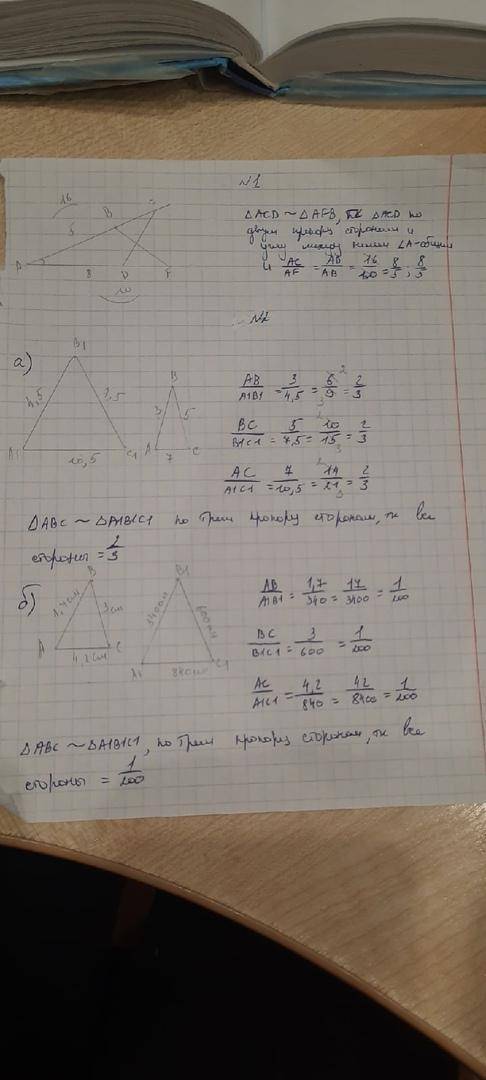 №1
16
B
5
A
8
D
F
10
△ACD ~ △AFB, тк △ACD по
двум пропорц сторонам и
углу между ними ∠A-общий
и AC/AF = AD/AB = 16/10 = 8/5 ; 8/5
№2
а)
B1
4,5
7,5
A1
10,5
C1
B
3
5
A
7
C
AB/A1B1 = 3/4,5 = 6/9 = 2/3
BC/B1C1 = 5/7,5 = 10/15 = 2/3
AC/A1C1 = 7/10,5 = 14/21 = 2/3
△ABC ~ △A1B1C1 по трем пропорц сторонам, тк все
стороны = 2/3
б)
B
1,7см
3см
A
4,2см
C
B1
600см
A1
840см
C1
AB/A1B1 = 1,7/340 = 17/3400 = 1/200
BC/B1C1 = 3/600 = 1/200
AC/A1C1 = 4,2/840 = 42/8400 = 1/200
△ABC ~ △A1B1C1, по трем пропорц сторонам, тк все
стороны = 1/200